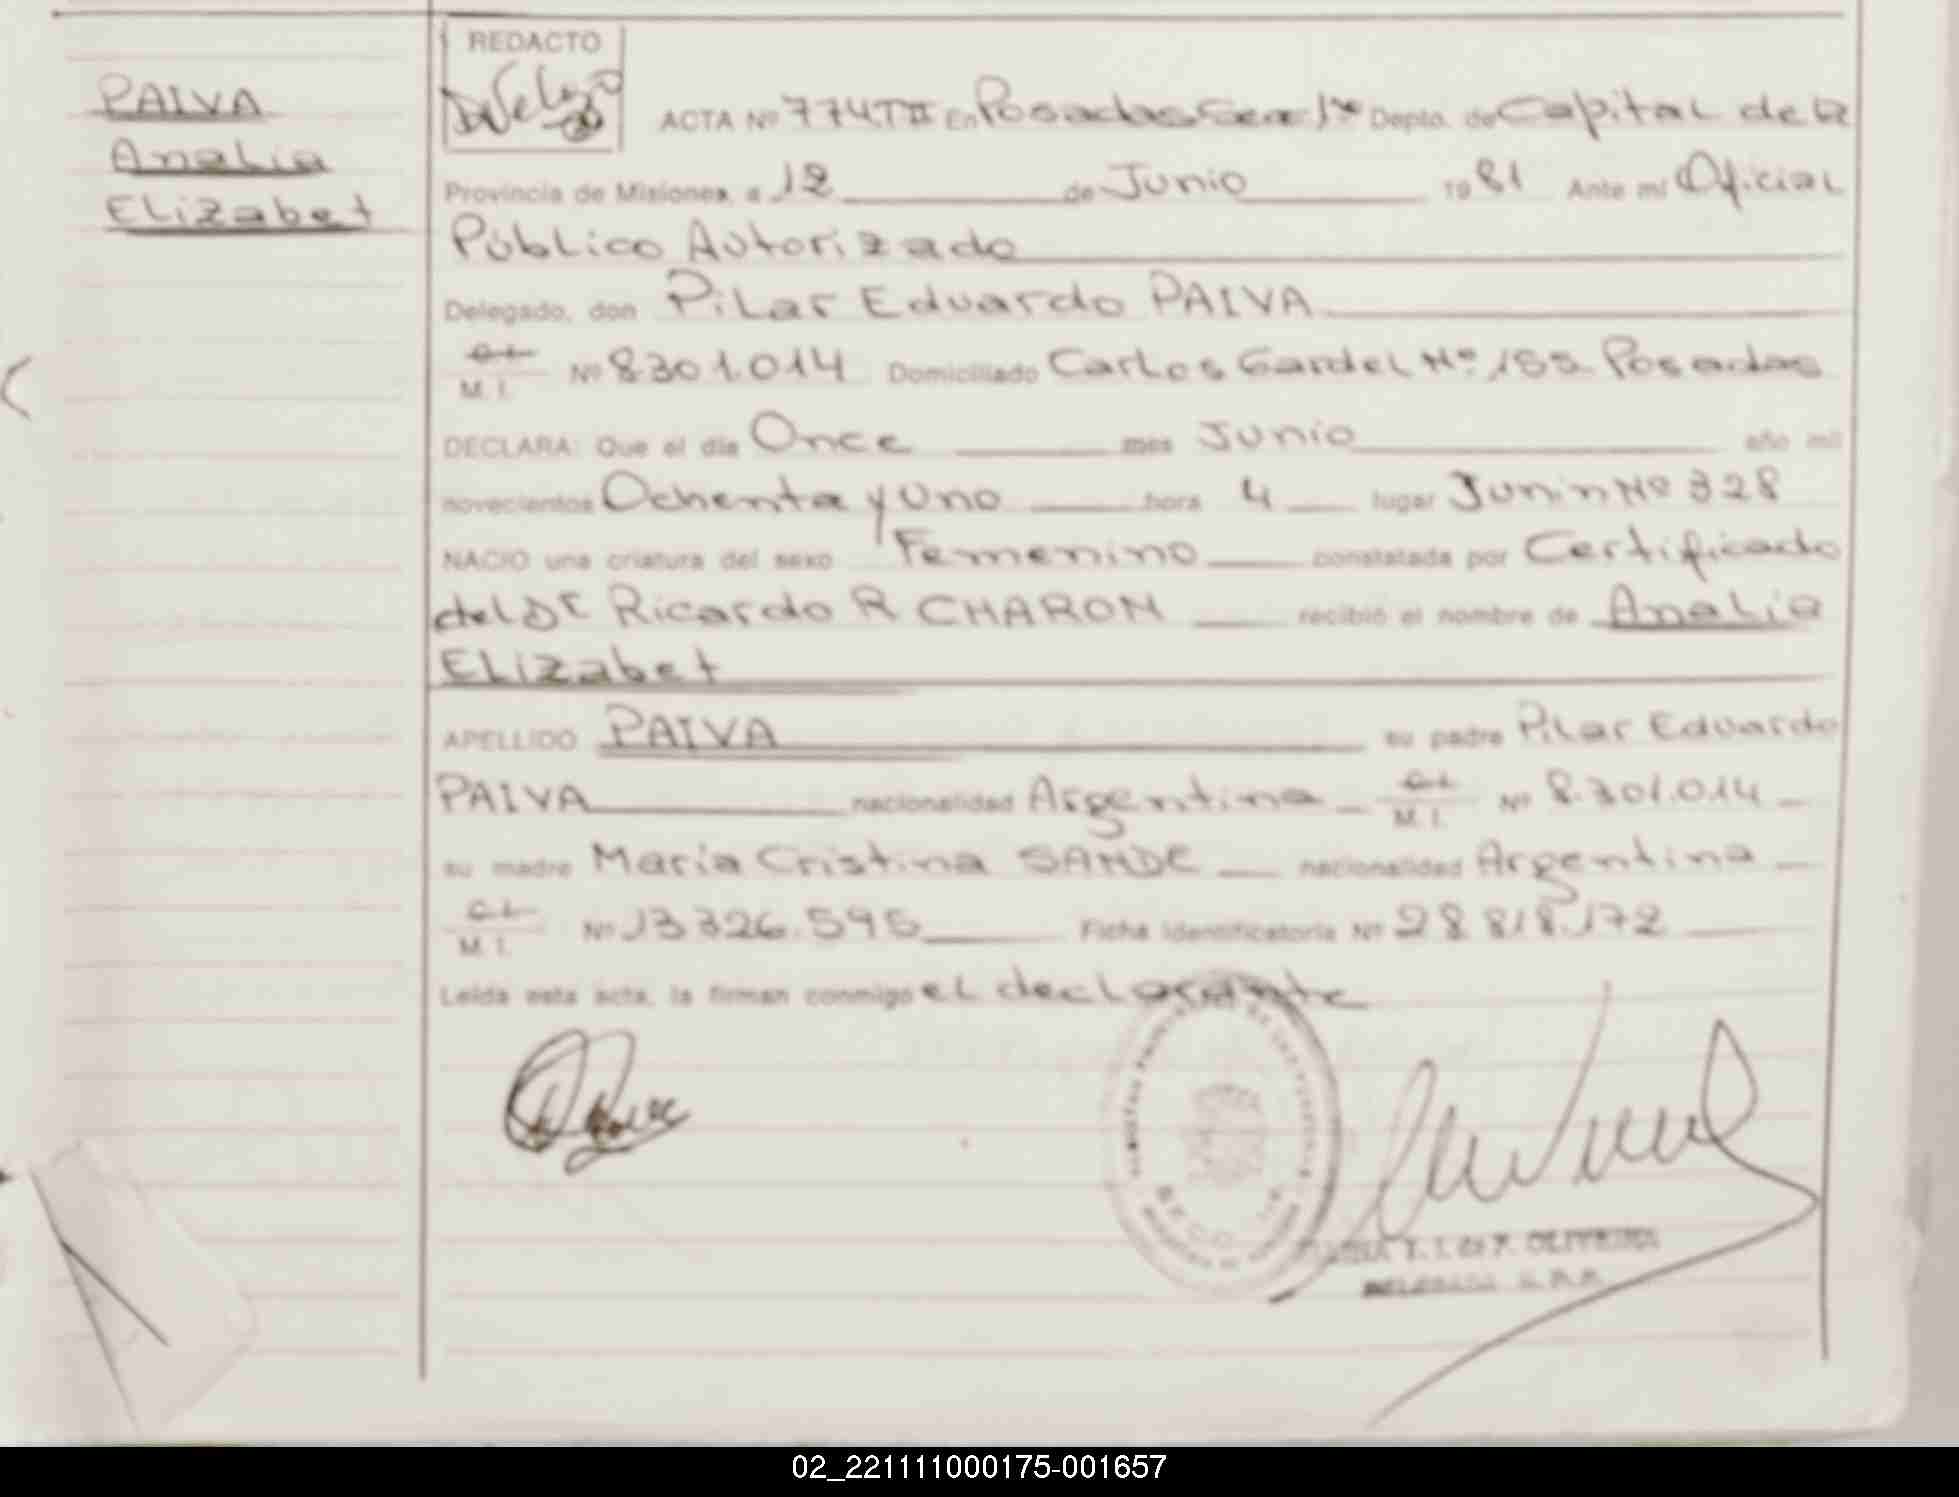 PAIVA
Analia
Elizabet
REDACTO
ACTA Nº 774TII En Posadas Secc 1ra Depto. de Capital de la
Provincia de Misiones, a 12 de Junio 1981 Ante mí Oficial
Público Autorizado
Delegado, don Pilar Eduardo PAIVA
C.I. M. I. Nº 8301.014 Domiciliado Carlos Gardel Nº 155 Posadas
DECLARA: Que el día Once mes Junio año mil
novecientos Ochenta y Uno hora 4 lugar Junin Nº 328
NACIO una criatura del sexo Femenino constatada por Certificado
del Dr Ricardo R CHARON recibió el nombre de Analia
Elizabet
APELLIDO PAIVA su padre Pilar Eduardo
PAIVA nacionalidad Argentina C.I. M. I. Nº 8.301.014
su madre Maria Cristina SANDE nacionalidad Argentina
C.I. M. I. Nº 13326.595 Ficha Identificatoria Nº 28 818.172
Leída esta acta, la firman conmigo el declarante
OLIVEIRA
02_221111000175-001657